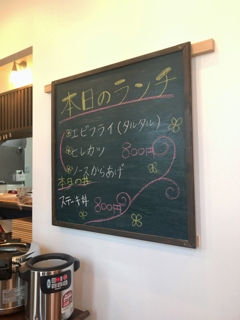 本日のランチ
㋐エビフライ(タルタル)
㋑ヒレカツ 800円
㋒ソースからあげ
本日の丼
ステーキ丼 800円